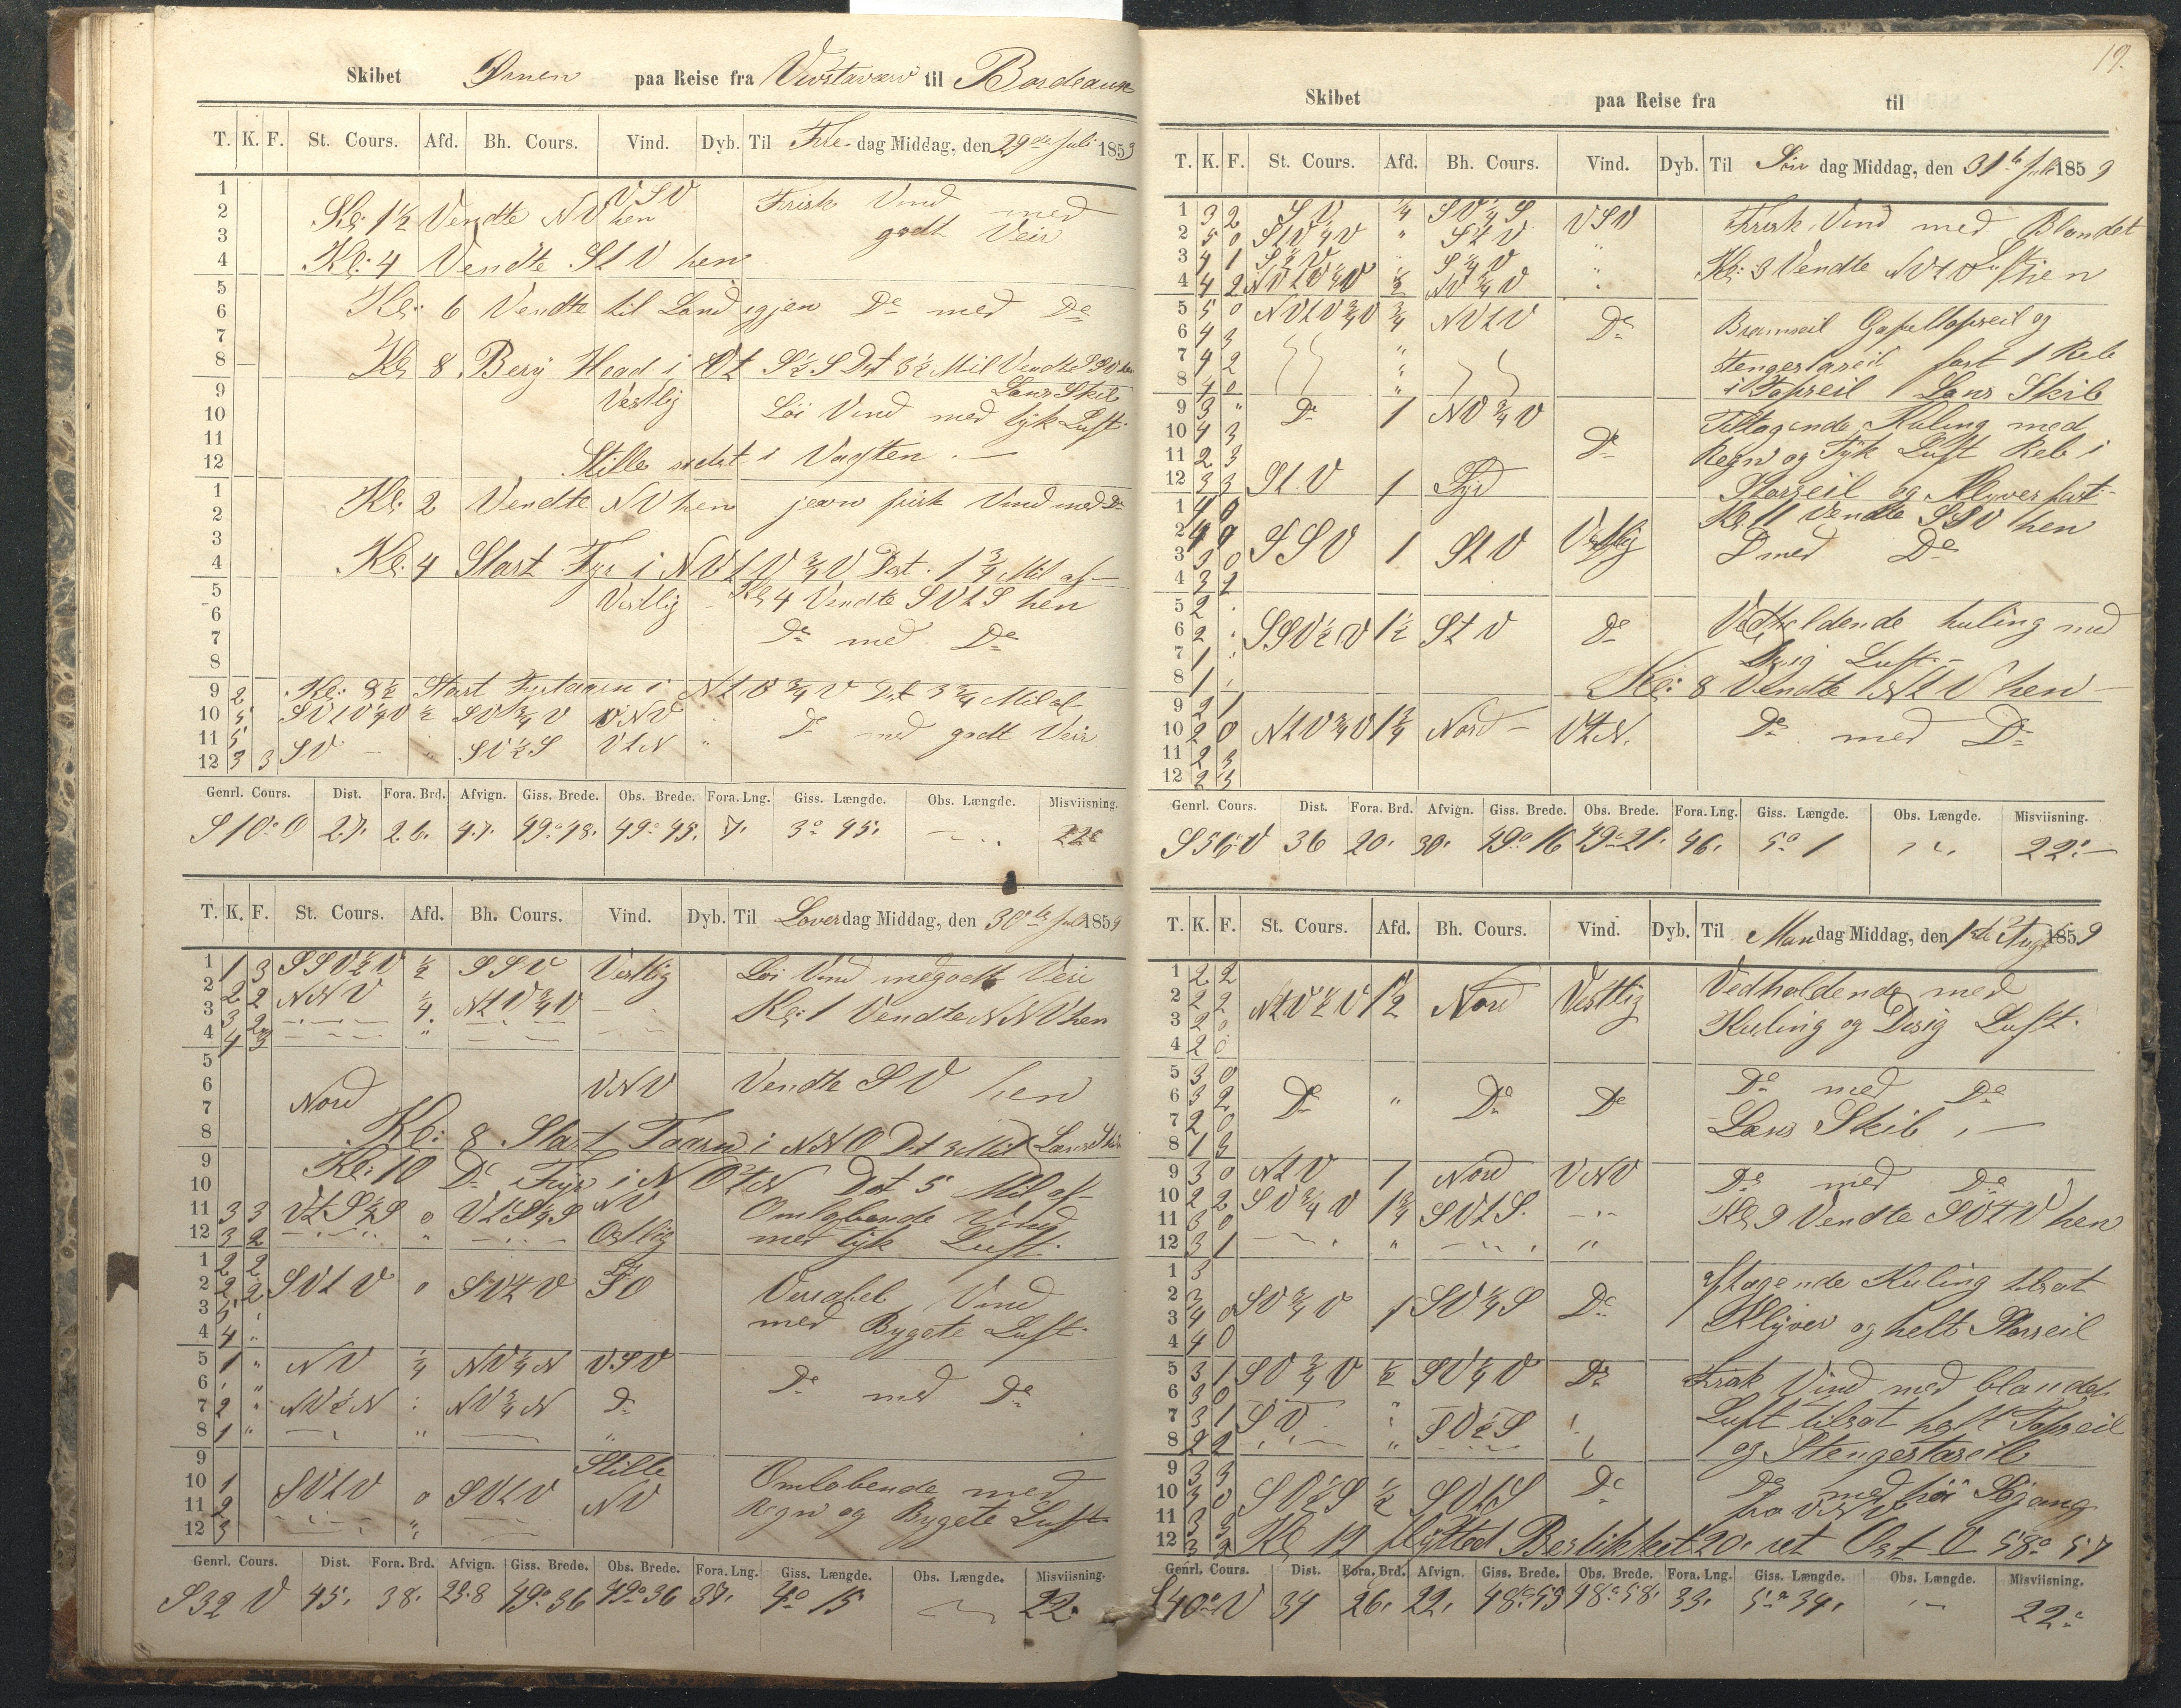 Skibet Ørnen paa Reise fra til Bordeaux
T. K. F. St. Cours. Afd. Bh. Cours. Vind. Dyb. Til Fredag Middag, den 29de Juli 1859
1 VSV Frisk Vind med
2 Kl: 1½ Vendte NV hen godt Veir
3
4 Kl: 4 Vendte StV hen
5
6 Kl: 6 Vendte til Land igjen Do med Do
7
8 Kl 8 Bery Head i Dst 3½ Mil Vendte
9 Vestlig Lans Skib
10 Löi Vind med tyk Luft
11
12 Stille sidst i Vagten
1
2 Kl: 2 Vendte NV hen jevn frisk Vind med Do
3
4 Kl: 4 Start Fyr i NVtV¾V Dist. 1¾ Mil af
5 Vestlig Kl 4 Vendte SVtS hen
6
7 Do med Do
8
9 2 Kl: 8½ Start Fyrtaarn i NtV¾V Dst 3¾ Mil af
10 5 SVtV¼V ½ SV¾V VNV Do med godt Veir
11 5 SV " SV½S VtN "
12 3 3
Genrl. Cours. Dist. Fora. Brd. Afvign. Giss. Brede. Obs. Brede. Fora. Lng. Giss. Længde. Obs. Længde. Misviisning.
S 10° O 27. 26. 4.7. 49° 48. 49° 45. 7. 3° 45. 22°
T. K. F. St. Cours. Afd. Bh. Cours. Vind. Dyb. Til Loverdag Middag, den 30te Juli 1859
1 1 3 SSV½V ½ SSV Vestlig Löi Vind med godt Veir
2 2 2 NNV ¼ NtV¾V Kl: 1 Vendte NNV hen
3 3 2
4 4 3 "
5
6 VNV Vendte SV hen
7 Nord
8 Kl: 8 Start Taarn i NNO Dst 3 Mil Lans Skib
9 Kl: 10 Do Fyr i NOtN Dst 5 Mil af
10 NV
11 3 3 VtS½S 0 VtS½S Omlöbende Vind
12 3 2 " Ostlig med tyk Luft
1 2 2
2 2 2 SVtV 0 SVtV SO Variabel Vind
3 5 "
4 4 " med Bygete Luft
5 1 " NV ¼ NV¼N VSV
6 " " Do med Do
7 2 " NV½N NV¾N Do
8 1 " " "
9 Stille
10 1 SVtV 0 SVtV NV Omlöbende med
11 2 Regn og Bygete Luft
12 3
Genrl. Cours. Dist. Fora. Brd. Afvign. Giss. Brede. Obs. Brede. Fora. Lng. Giss. Længde. Obs. Længde. Misviisning.
S 32 V 45. 38. 23.8 49° 36 49° 36 37. 4° 15 22°
19.
Skibet paa Reise fra til
T. K. F. St. Cours. Afd. Bh. Cours. Vind. Dyb. Til Söndag Middag, den 31te Juli 1859
1 3 2 SV ¼ SV¼S VSV Frisk Vind med Blandet
2 5 0 StV¼V " StV " Luft
3 4 1 S½V S¼V " Kl: 3 Vendte NVtV hen
4 4 2 NVtV¼V ½ NV¾V "
5 5 0 NVtV¾V ¾ NVtV Do Bramseil Gaffeltopseil og
6 4 3 "
7 4 2 " Stengestaseil fast 1 Reb
8 4 0 " i Topseil Lans Skib
9 3 " Do 1 NV¾V Tiltagende Kuling med
10 4 3 Do Regn og Tyk Luft Reb i
11 2 3
12 3 3 StV 1 Syd Storseil og Klyver fast
1 4 0 Kl 11 Vendte SSV hen
2 4 0 SSV 1 StV Vestlig D med Do
3 3 0
4 3 2
5 2 .
6 2 . SSV½V 1½ StV Do Vedholdende kuling med
7 1 . Disig Luft
8 1 . Kl: 8 Vendte NtV hen
9 2 1
10 2 0 NtV¾V 1¾ Nord VtN. Do med Do
11 2 3
12 2 3
Genrl. Cours. Dist. Fora. Brd. Afvign. Giss. Brede. Obs. Brede. Fora. Lng. Giss. Længde. Obs. Længde. Misviisning.
S 56° V 36 20. 30. 49° 16 49° 21. 46. 5° 1 22°
T. K. F. St. Cours. Afd. Bh. Cours. Vind. Dyb. Til Mandag Middag, den 1ste Augt 1859
1 2 2 Vedholdende med
2 2 2 NtV½V 1½ Nord Vestlig
3 2 0 Kuling og Disig Luft.
4 2 0
5 3 0 Do med Do
6 3 2 Do " Do Do
7 2 0 Lans Skib
8 1 3
9 3 0 NtV 1 Nord VNV Do med Do
10 2 2 SV¾V 1¾ SVtS
11 3 0 Kl 9 Vendte SVtV hen
12 3 1 " "
1 3 aftagende Kuling tilsat
2 3 SV¾V 1 SV¼S Do
3 4 0 Klyver og helt Storseil
4 4 0
5 3 1 SV¾V ½ SV¼V Do Frisk Vind med blandet
6 3 0
7 3 1 SV " SV½S Luft tilsat helt Topseil
8 2 2 " og Stengestaseil
9 3 3
10 3 0 SV½S ½ SVtS Do Do med höi Sögang
11 3 3 fra VNV
12 3 3 Kl 12 flyttet Bestikket 20. ret Ost V 58° 57
Genrl. Cours. Dist. Fora. Brd. Afvign. Giss. Brede. Obs. Brede. Fora. Lng. Giss. Længde. Obs. Længde. Misviisning.
S 40° V 34 26. 22. 48° 55 48° 58. 33. 5° 34. 22°